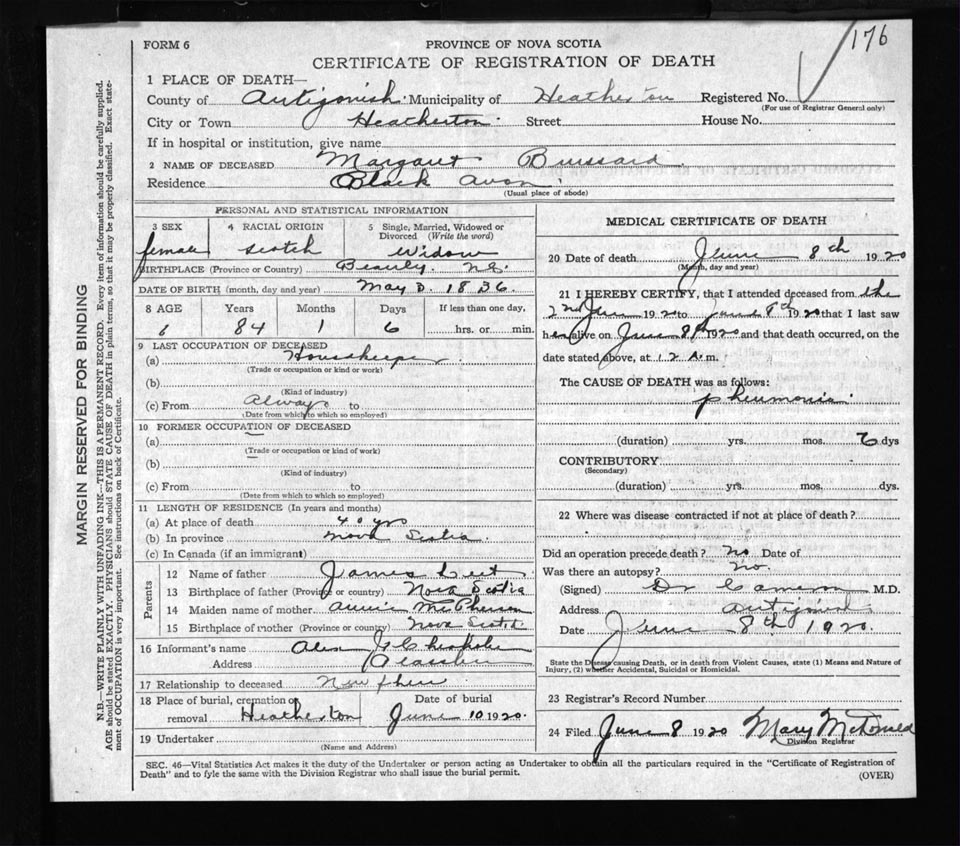 176
FORM 6
PROVINCE OF NOVA SCOTIA
CERTIFICATE OF REGISTRATION OF DEATH
1 PLACE OF DEATH—
County of Antigonish Municipality of Heatherton Registered No.
(For use of Registrar General only)
City or Town Heatherton Street House No.
If in hospital or institution, give name
2 NAME OF DECEASED Margaret
Residence Black Avon
(Usual place of abode)
MARGIN RESERVED FOR BINDING
N.B.—WRITE PLAINLY WITH UNFADING INK—THIS IS A PERMANENT RECORD. Every item of information should be carefully supplied.
AGE should be stated EXACTLY. PHYSICIANS should STATE CAUSE OF DEATH in plain terms, so that it may be properly classified. Exact state-
ment of OCCUPATION is very important. See instructions on back of Certificate.
PERSONAL AND STATISTICAL INFORMATION
3 SEX 4 RACIAL ORIGIN 5 Single, Married, Widowed or
Divorced (Write the word)
female scotch Widow
BIRTHPLACE (Province or Country) Beauly. N.S.
DATE OF BIRTH (month, day and year) May 1836
8 AGE Years Months Days If less than one day,
84 1 6 hrs. or min.
9 LAST OCCUPATION OF DECEASED
(a) Housekeeper
(Trade or occupation or kind or work)
(b)
(Kind of industry)
(c) From always to
(Date from which to which so employed)
10 FORMER OCCUPATION OF DECEASED
(a)
(Trade or occupation or kind of work)
(b)
(Kind of industry)
(c) From to
(Date from which to which so employed)
11 LENGTH OF RESIDENCE (In years and months)
(a) At place of death 40 yrs
(b) In province Nova Scotia
(c) In Canada (if an immigrant)
Parents
12 Name of father James
13 Birthplace of father (Province or country) Nova Scotia
14 Maiden name of mother Annie McPherson
15 Birthplace of mother (Province or country) Nova Scotia
16 Informant's name Alex
Address
17 Relationship to deceased
18 Place of burial, cremation or Date of burial
removal Heatherton June 10 1920
19 Undertaker
(Name and Address)
MEDICAL CERTIFICATE OF DEATH
20 Date of death June 8th 1920
(Month, day and year)
21 I HEREBY CERTIFY, that I attended deceased from the
2nd June 1920 to June 8th 1920 that I last saw
her alive on June 8th 1920 and that death occurred, on the
date stated above, at 12 A.m.
The CAUSE OF DEATH was as follows:
pneumonia
(duration) yrs. mos. 6 dys
CONTRIBUTORY
(Secondary)
(duration) yrs. mos. dys.
22 Where was disease contracted if not at place of death?
Did an operation precede death? No Date of
Was there an autopsy? No.
(Signed) Dr Cameron M.D.
Address Antigonish
Date June 8th 1920.
State the Disease causing Death, or in death from Violent Causes, state (1) Means and Nature of
Injury, (2) whether Accidental, Suicidal or Homicidal.
23 Registrar's Record Number
24 Filed June 8 1920 Mary
Division Registrar
SEC. 46—Vital Statistics Act makes it the duty of the Undertaker or person acting as Undertaker to obtain all the particulars required in the "Certificate of Registration of
Death" and to fyle the same with the Division Registrar who shall issue the burial permit.
(OVER)